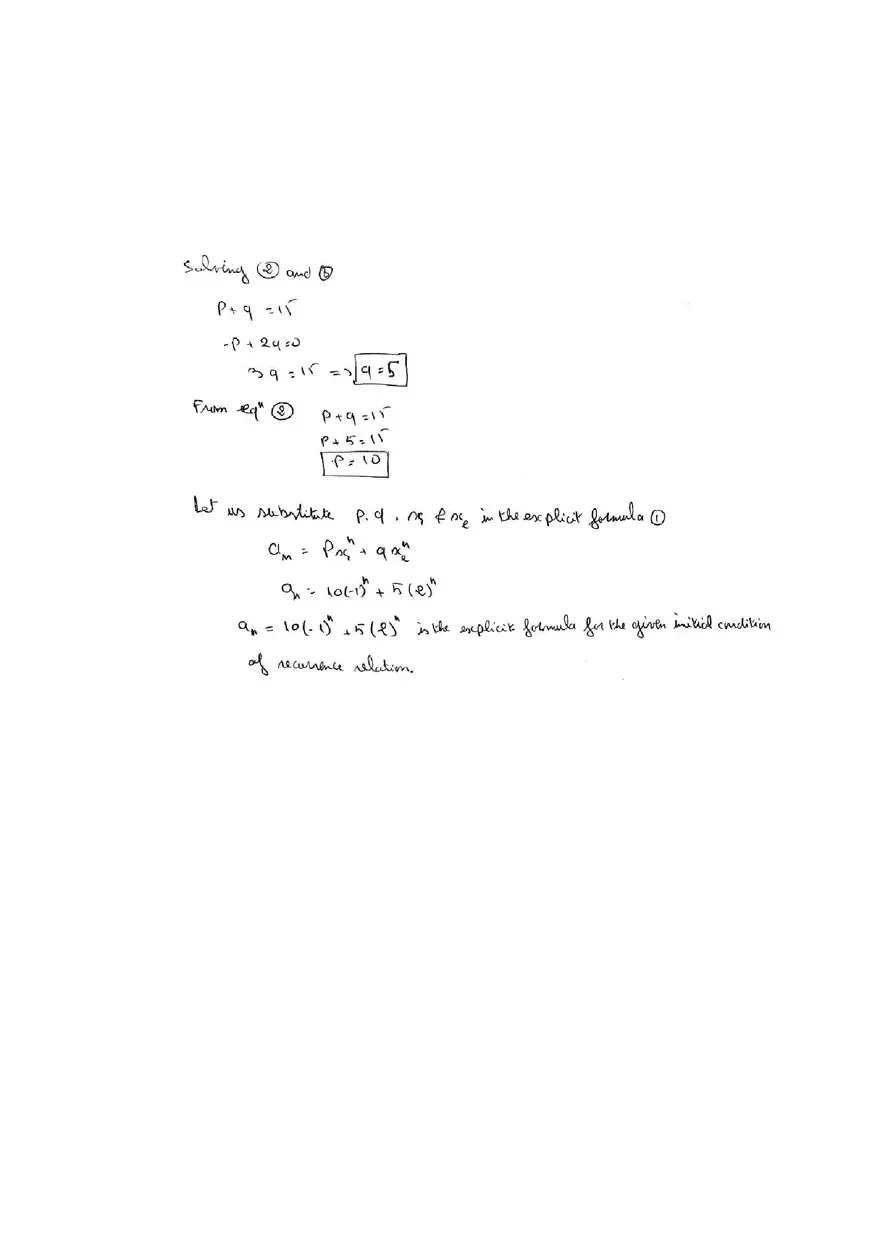 Solving ② and ⑤
P + q = 15
-P + 2q = 0
3q = 15 => q = 5
From eqⁿ ② P + q = 15
P + 5 = 15
P = 10
Let us substitute p, q, x₁ & x₂ in the explicit formula ①
aₙ = Px₁ⁿ + qx₂ⁿ
aₙ = 10(-1)ⁿ + 5(2)ⁿ
aₙ = 10(-1)ⁿ + 5(2)ⁿ is the explicit formula for the given initial condition
of recurrence relation.